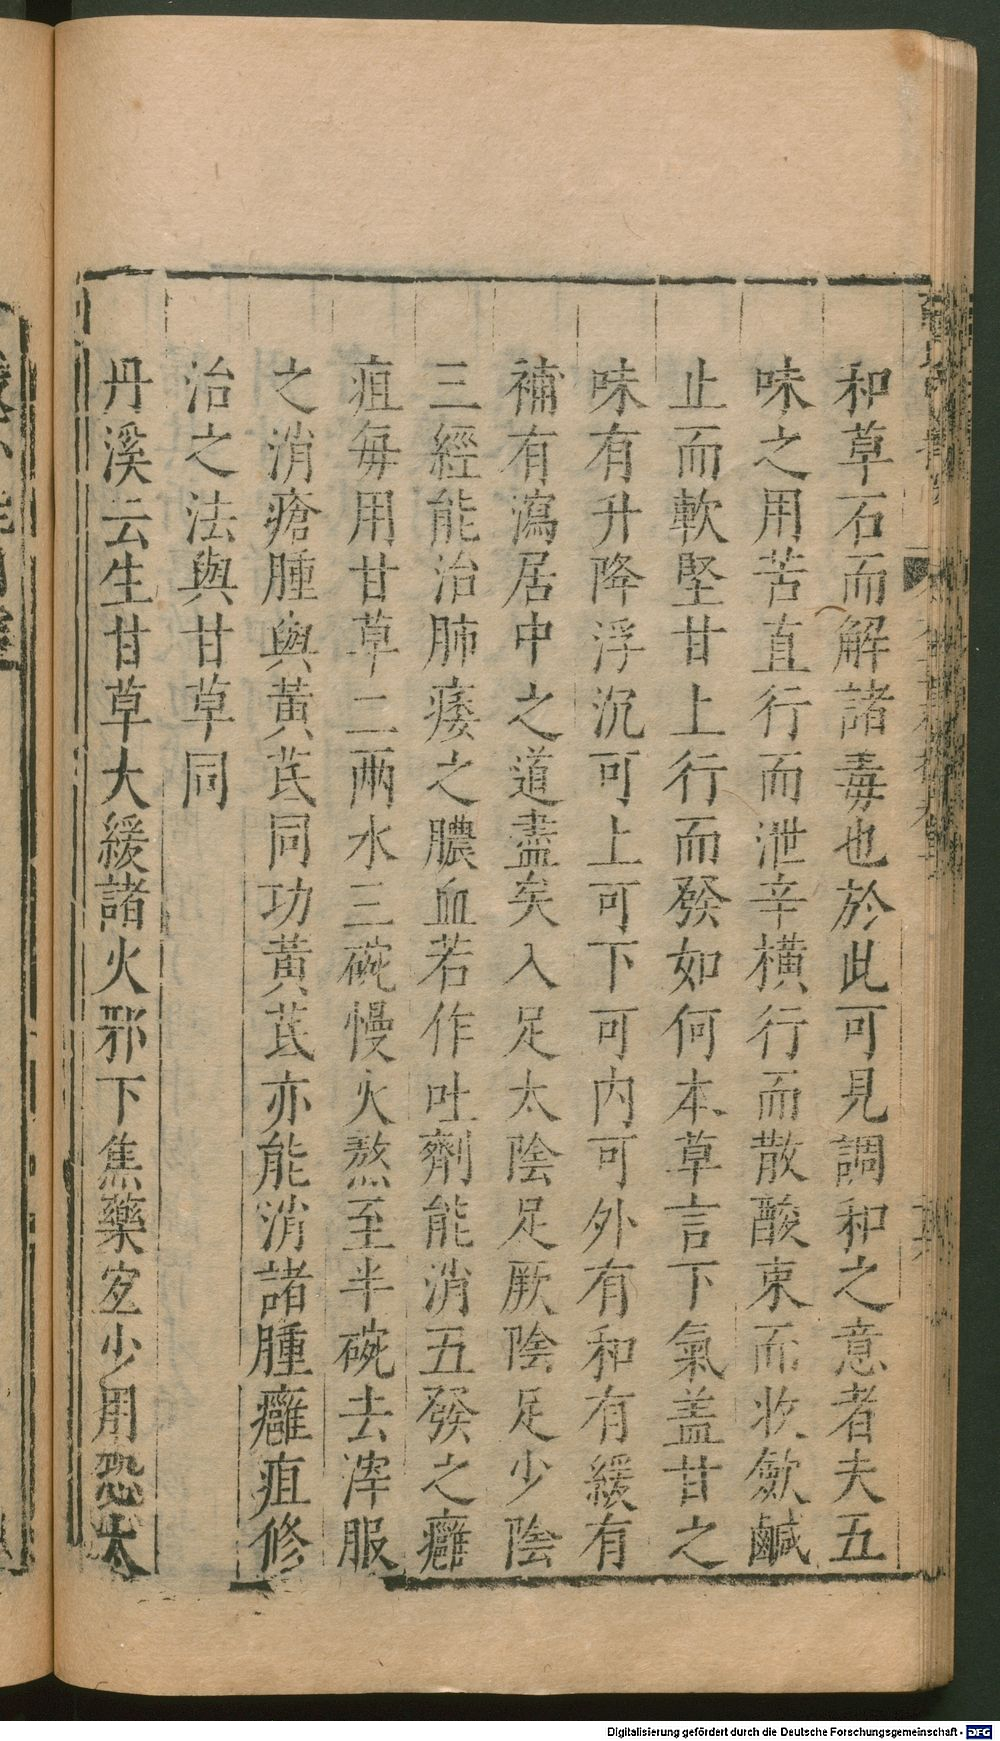 和草石而解諸毒也於此可見調和之意者夫五
味之用苦直行而泄辛橫行而散酸束而收斂鹹
止而軟堅甘上行而發如何本草言下氣蓋甘之
味有升降浮沉可上可下可內可外有和有緩有
補有瀉居中之道盡矣入足太陰足厥陰足少陰
三經能治肺痿之膿血若作吐劑能消五發之癰
疽每用甘草二兩水三碗慢火熬至半碗去滓服
之消瘡腫與黃芪同功黃芪亦能消諸腫癰疽修
治之法與甘草同
丹溪云生甘草大緩諸火邪下焦藥宐少用恐太
Digitalisierung gefördert durch die Deutsche Forschungsgemeinschaft - DFG